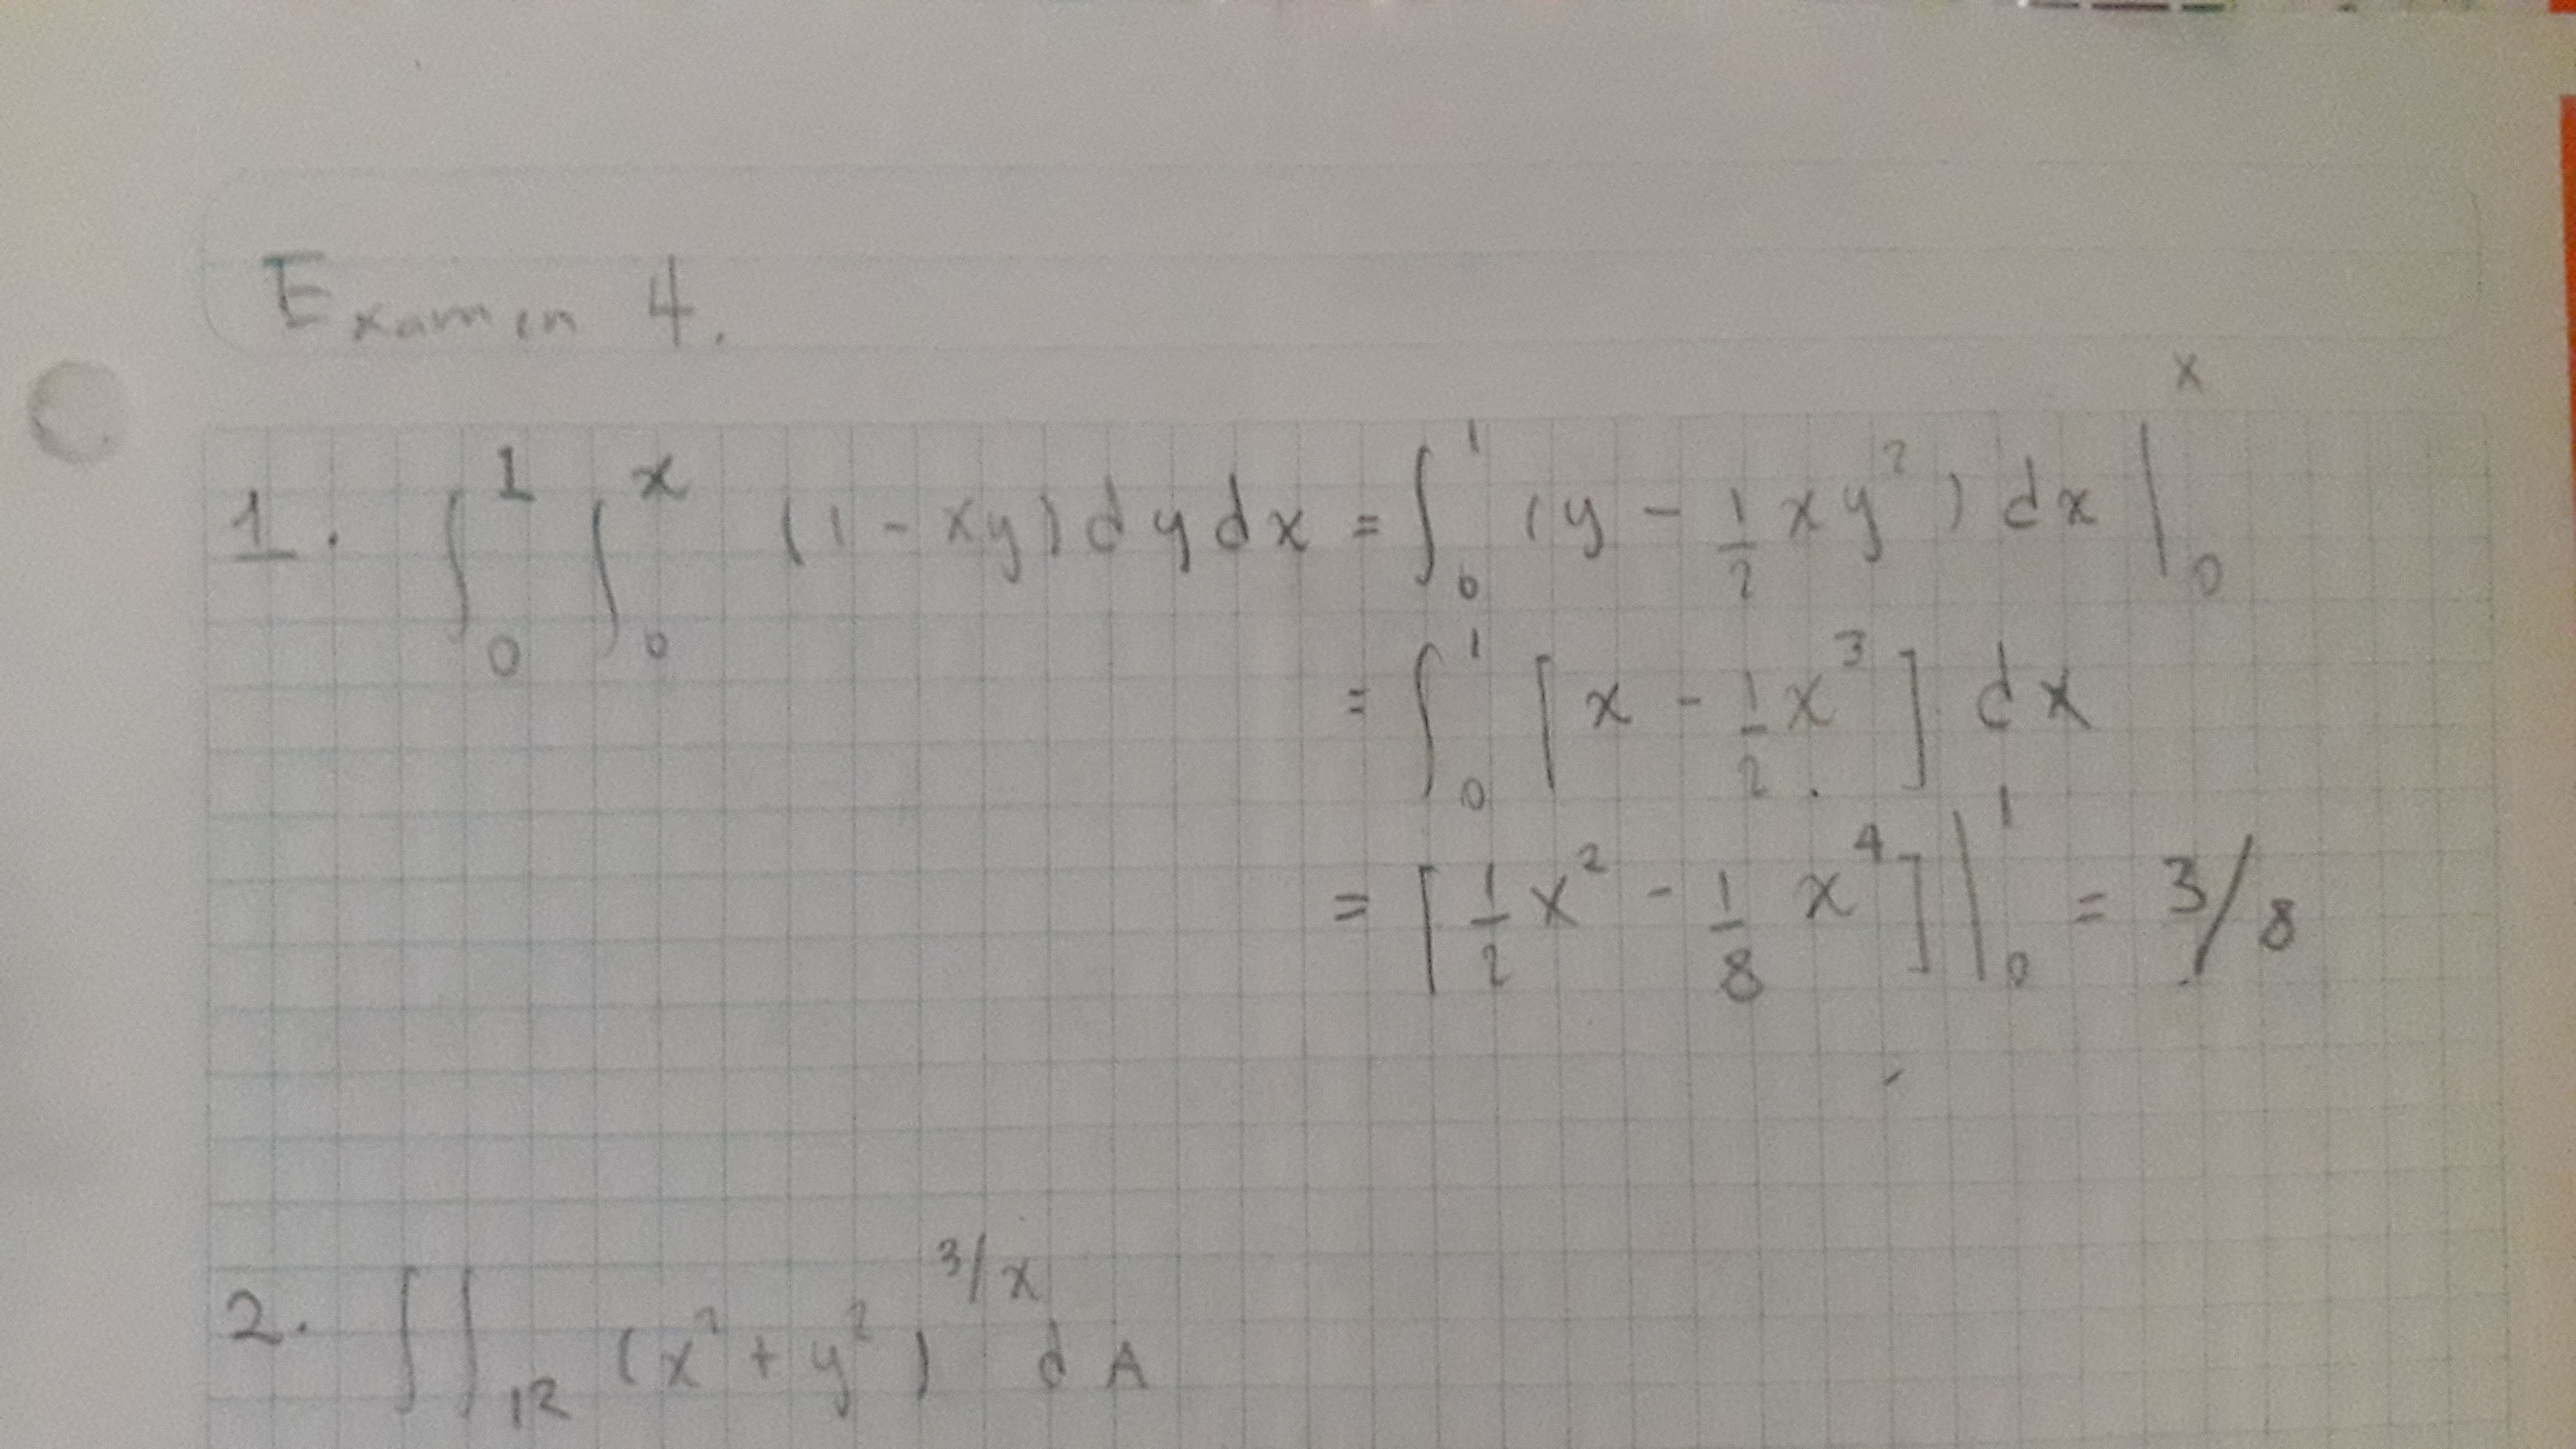 Examen 4.
1. ∫₀¹ ∫₀ˣ (1 - xy) dy dx = ∫₀¹ (y - 1/2 xy²) dx |₀ˣ
= ∫₀¹ [x - 1/2 x³] dx
= [1/2 x² - 1/8 x⁴] |₀¹ = 3/8
2. ∫∫_R (x² + y²)^(3/x) dA